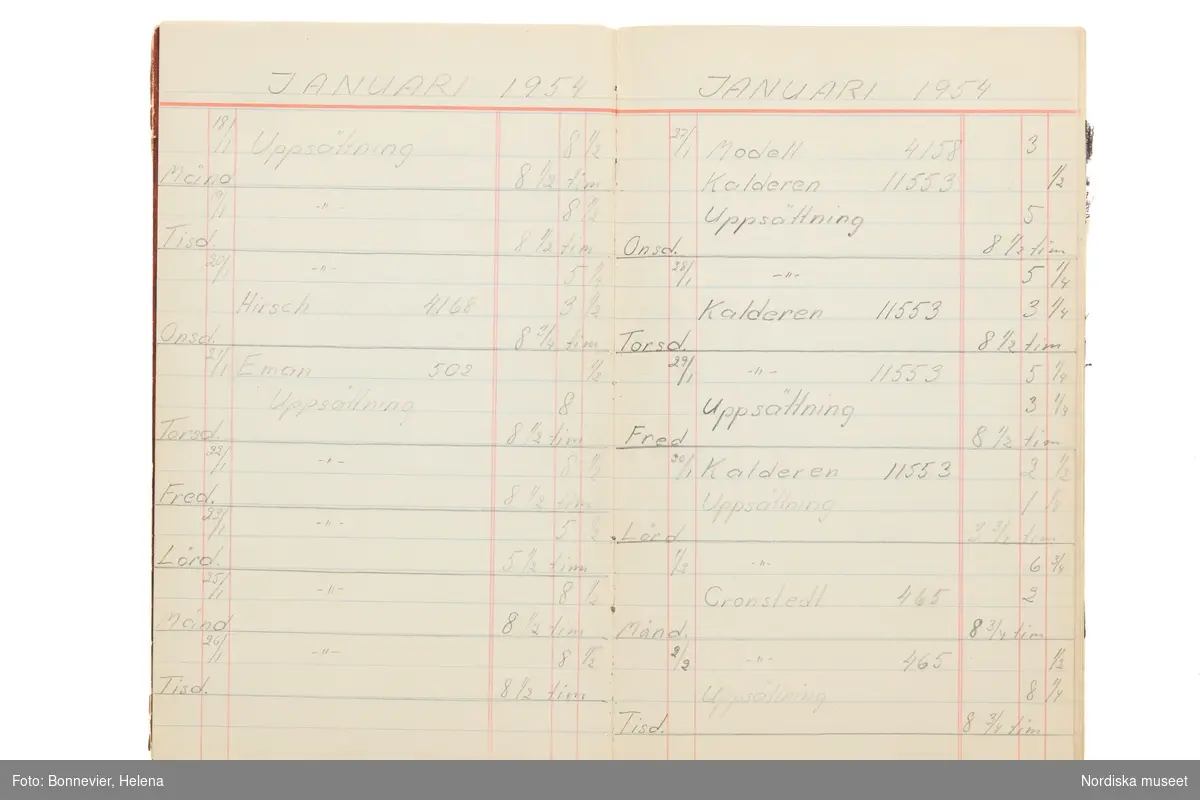 JANUARI 1954
18/1 Uppsättning 8 1/2
Månd 8 1/2 tim
19/1 -"- 8 1/2
Tisd. 8 1/2 tim
20/1 -"- 5 1/4
Hirsch 4168 3 1/2
Onsd. 8 3/4 tim
21/1 Eman 502 1/2
Uppsättning 8
Torsd. 8 1/2 tim
22/1 -"- 8 1/2
Fred. 8 1/2 tim
23/1 -"- 5 1/2
Lörd. 5 1/2 tim
25/1 -"- 8 1/2
Månd 8 1/2 tim
26/1 -"- 8 1/2
Tisd. 8 1/2 tim
JANUARI 1954
27/1 Modell 4158 3
Kalderen 11553 1/2
Uppsättning 5
Onsd. 8 1/2 tim
28/1 -"- 5 1/4
Kalderen 11553 3 1/4
Torsd. 8 1/2 tim
29/1 -"- 11553 5 1/4
Uppsättning 3 1/4
Fred 8 1/2 tim
30/1 Kalderen 11553 2 1/2
Uppsättning 1
Lörd 3/4 tim
1/2 -"- 6 3/4
Cronstedt 465 2
Månd. 8 3/4 tim
2/2 -"- 465 1/2
Uppsättning 8 1/4
Tisd. 8 3/4 tim
Foto: Bonnevier, Helena
Nordiska museet